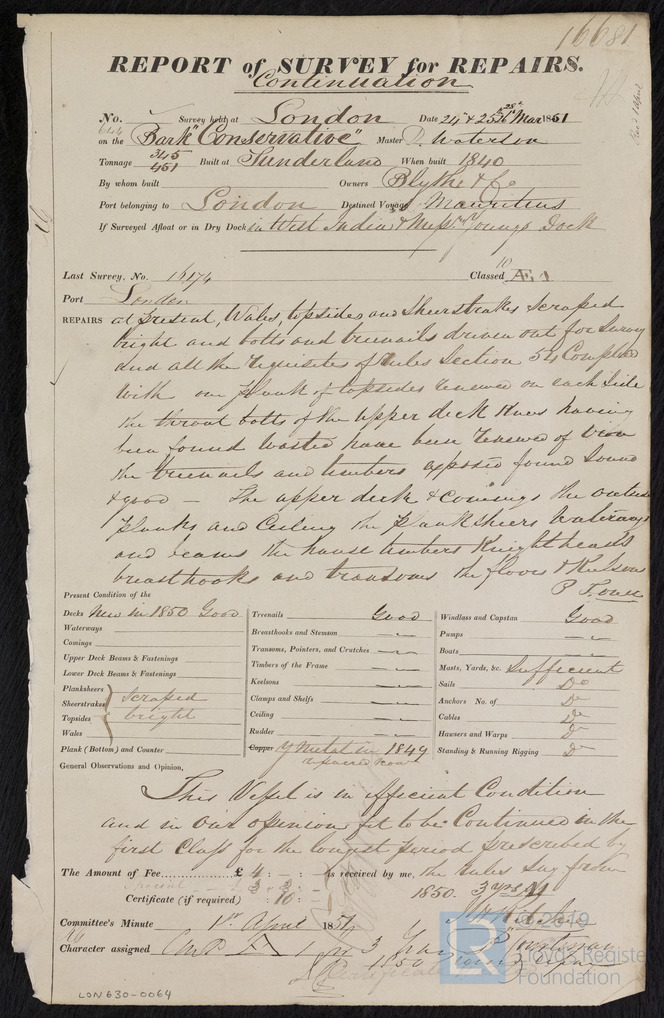 16681
REPORT of SURVEY for REPAIRS.
Continuation
No. Survey held at London Date 24 & 25 28th Mar 1851
on the Bark "Conservative" Master Waterson
Tonnage 345 Built at Sunderland When built 1840
451
By whom built Owners Blythe & Co
Port belonging to London Destined Voyage Mauritius
If Surveyed Afloat or in Dry Dock in West India & Youngs Dock
Last Survey, No. 16174 Classed 10 Æ 1
Port London
REPAIRS at present, Wales, topsides and Sheerstrakes scraped
bright and bolts and treenails driven out for Survey
and all the requisites of Rules Section 54 Complied
with one plank of topsides renewed on each side
the throat bolts of the upper deck knees having
been found wasted have been renewed of iron
the treenails and timbers exposed found sound
& good — The upper deck & comings the outside
planks and Ceiling the planksheers Waterways
and beams the hause timbers Knightheads
breasthooks and transoms the floors & Keelsons
P T. over
Present Condition of the
Decks New in 1850 Good
Waterways
Comings
Upper Deck Beams & Fastenings
Lower Deck Beams & Fastenings
Planksheers
Sheerstrakes
Topsides
Wales
scraped
bright
Plank (Bottom) and Counter
Treenails Good
Breasthooks and Stemson
Transoms, Pointers, and Crutches
Timbers of the Frame
Keelsons
Clamps and Shelfs
Ceiling
Rudder
Copper Y Metal in 1849
repaired now
Windlass and Capstan Good
Pumps
Boats
Masts, Yards, &c. Sufficient
Sails Do
Anchors No. of Do
Cables Do
Hawsers and Warps Do
Standing & Running Rigging Do
General Observations and Opinion,
This Vessel is in efficient Condition
and in our opinion fit to be Continued in the
first Class for the longest period prescribed by
The Amount of Fee £ 4 : - : - As received by me, the Rules say from
Special £ 3 : 3 : -
1850. 3 yrs
Certificate (if required) : 10 : -
Committee's Minute 1st April 1851
Character assigned
1850
LON630-0064
LR
© 2019
Lloyd's Register
Foundation